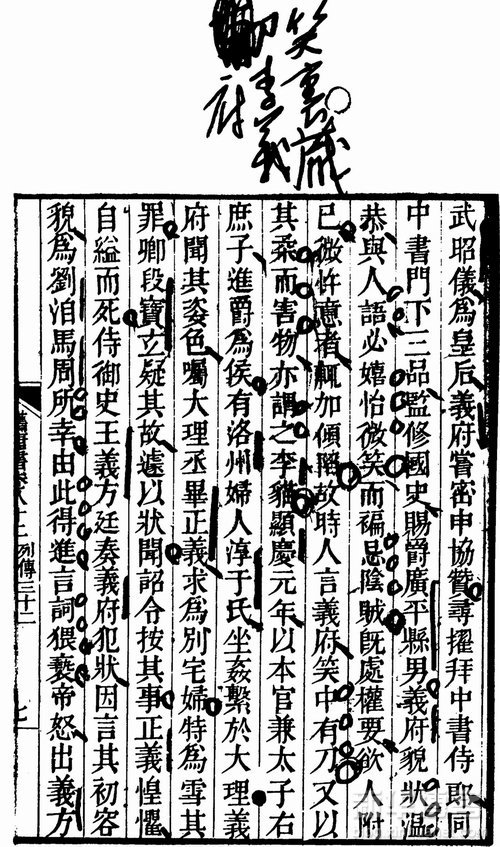 笑裏藏
刀李義
府
武昭儀爲皇后義府嘗密申協贊尋擢拜中書侍郎同
中書門下三品監修國史賜爵廣平縣男義府貌狀溫
恭與人語必嬉怡微笑而褊忌陰賊旣處權要欲人附
已微忤意者輒加傾陷故時人言義府笑中有刀又以
其柔而害物亦謂之李貓顯慶元年以本官兼太子右
庶子進爵爲侯有洛州婦人淳于氏坐姦繫於大理義
府聞其姿色囑大理丞畢正義求爲別宅婦特爲雪其
罪卿段寶玄疑其故遽以狀聞詔令按其事正義惶懼
自縊而死侍御史王義方廷奏義府犯狀因言其初容
貌爲劉洎馬周所幸由此得進言詞猥褻帝怒出義方
舊唐書卷八十二 列傳三十二 七